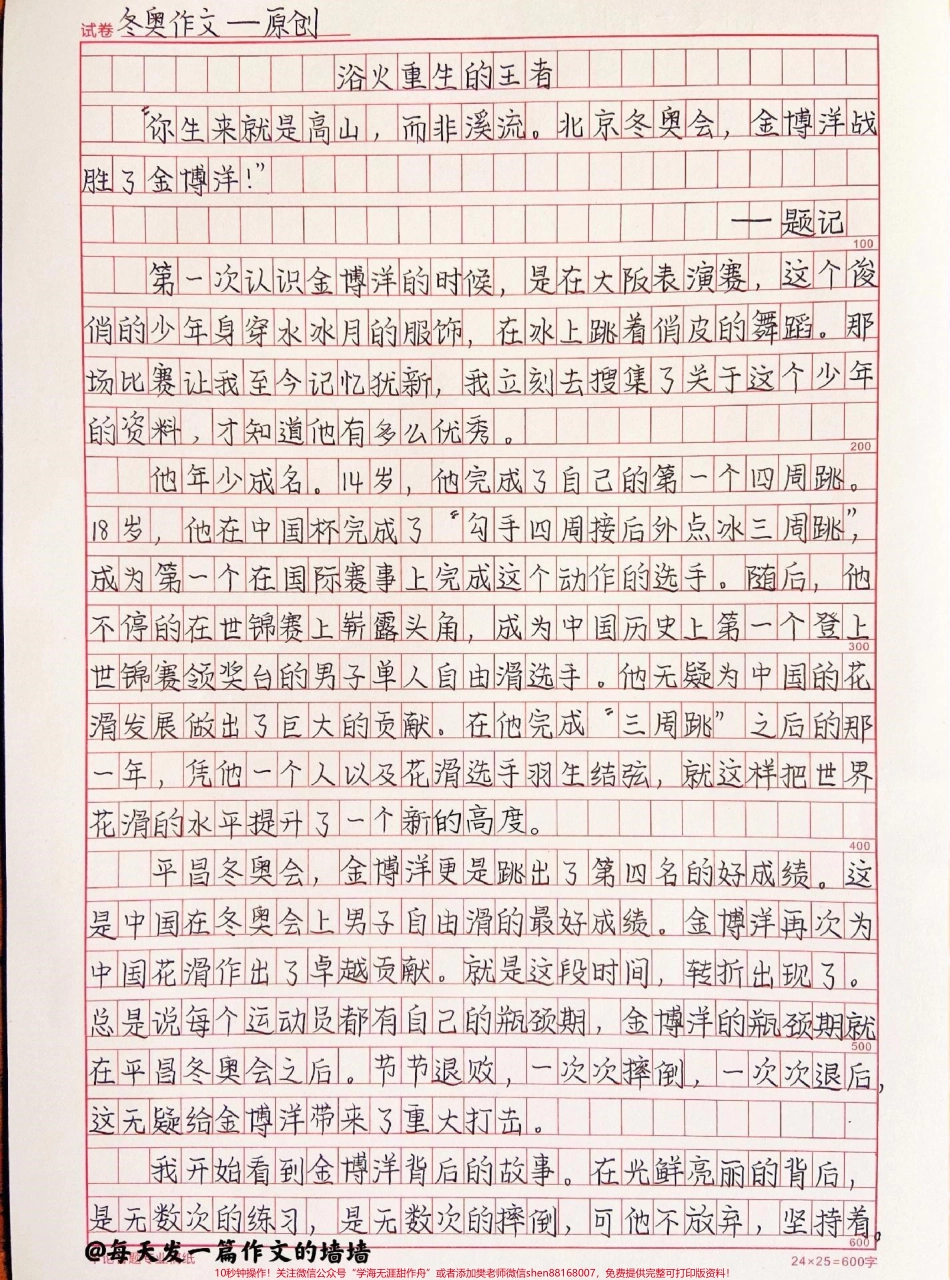 试卷 冬奥作文一原创
浴火重生的王者
“你生来就是高山，而非溪流。北京冬奥会，金博洋战
胜了金博洋！”
一题记
100
第一次认识金博洋的时候，是在大阪表演赛，这个俊
俏的少年身穿水冰月的服饰，在冰上跳着俏皮的舞蹈。那
场比赛让我至今记忆犹新，我立刻去搜集了关于这个少年
的资料，才知道他有多么优秀。
200
他年少成名。14岁，他完成了自己的第一个四周跳。
18岁，他在中国杯完成了“勾手四周接后外点冰三周跳”，
成为第一个在国际赛事上完成这个动作的选手。随后，他
不停的在世锦赛上崭露头角，成为中国历史上第一个登上
300
世锦赛领奖台的男子单人自由滑选手。他无疑为中国的花
滑发展做出了巨大的贡献。在他完成“三周跳”之后的那
一年，凭他一个人以及花滑选手羽生结弦，就这样把世界
花滑的水平提升了一个新的高度。
400
平昌冬奥会，金博洋更是跳出了第四名的好成绩。这
是中国在冬奥会上男子自由滑的最好成绩。金博洋再次为
中国花滑作出了卓越贡献。就是这段时间，转折出现了。
总是说每个运动员都有自己的瓶颈期，金博洋的瓶颈期就
500
在平昌冬奥会之后。节节退败，一次次摔倒，一次次退后，
这无疑给金博洋带来了重大打击。
我开始看到金博洋背后的故事。在光鲜亮丽的背后，
是无数次的练习，是无数次的摔倒，可他不放弃，坚持着。
600
@每天发一篇作文的墙墙
24×25=600字
10秒钟操作！关注微信公众号“学海无涯甜作舟”或者添加樊老师微信shen88168007，免费提供完整可打印版资料！